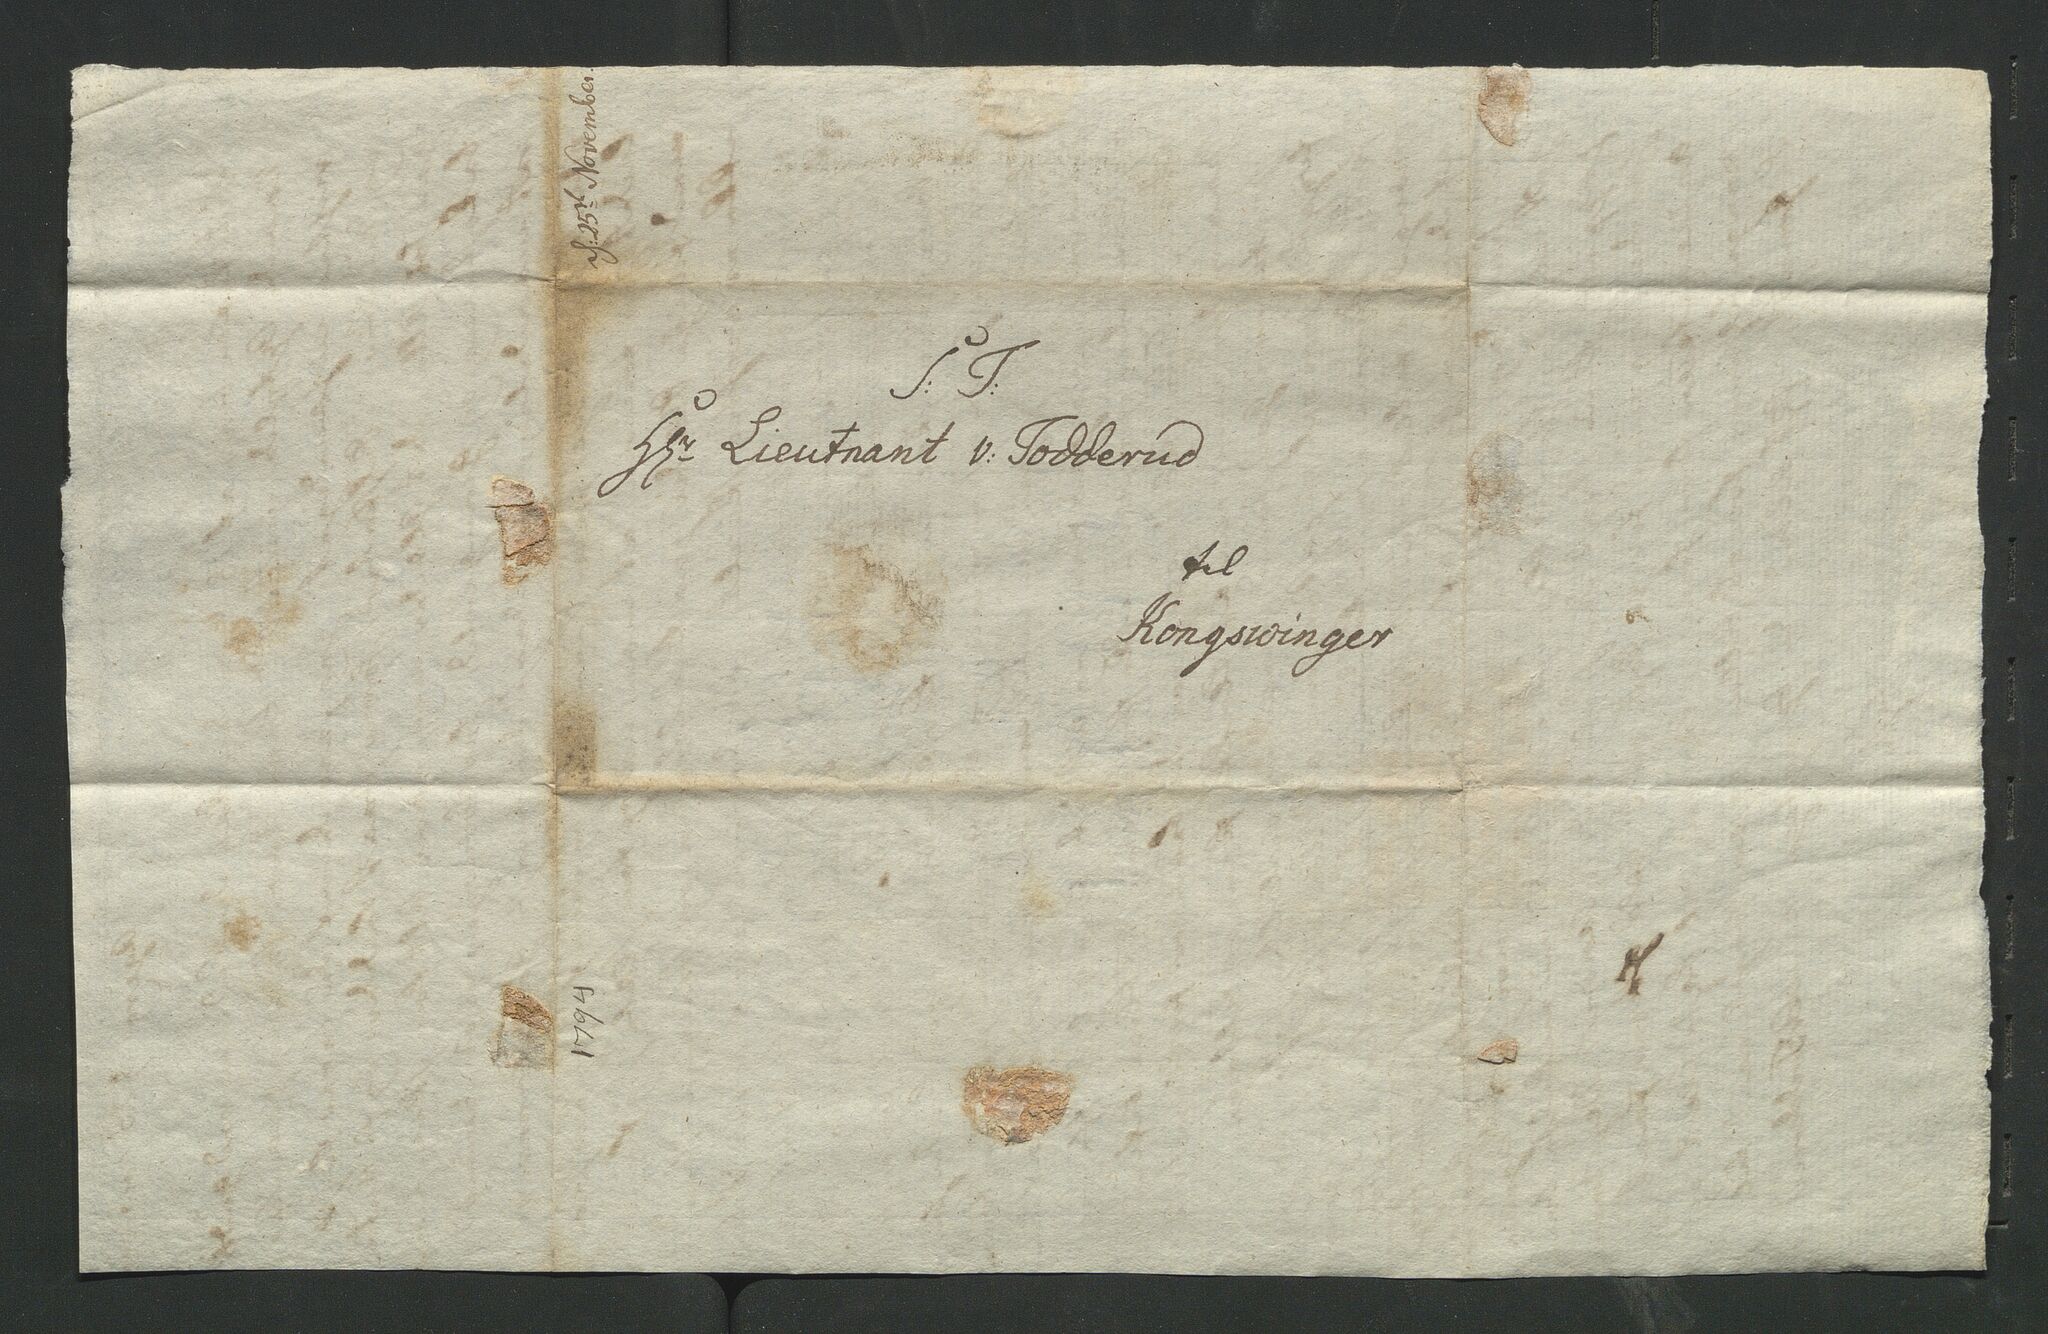 S: T:
Hr Lieutnant v: Todderud
til
Kongswinger
d: 25de November.
1794